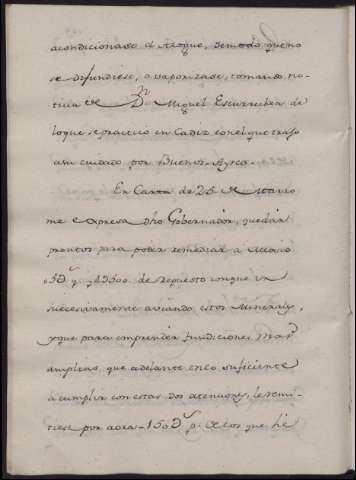 acondicionase el Azogue, demodo queno
se difundiese, o vaporizase, tomando no-
ticia de Dn Miguel Escurrechea de
loque se practicó en Cadiz conelque trajo
asu cuidado por Buenos-Ayres.
En Carta de 26 de Marzo
me expresa dho Gobernador, quedan
prontos para poder remediar a
y 4500 de repuesto conque ir
subcesivamente aviando estos Minerales,
yque para emprender fundiciones mas
amplias, que adelanten lo suficiente
à cumplir con estas dos atenciones, le remi-
tiese por aora 150 ps de los que hé